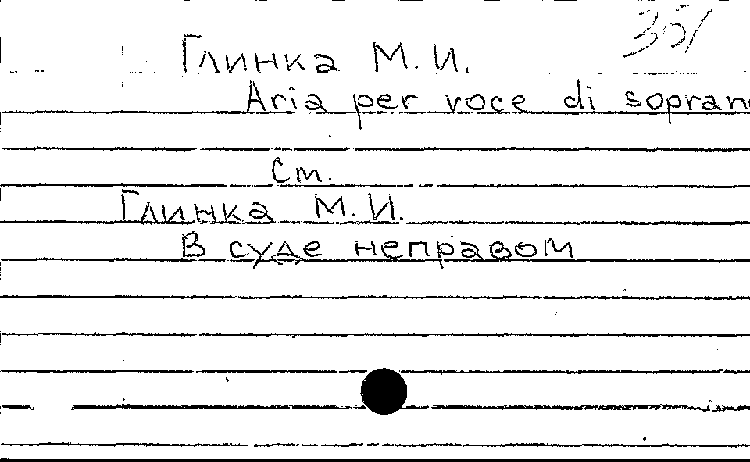 351
Глинка М. И.
Aria per voce di soprano
См.
Глинка М. И.
В суде неправом